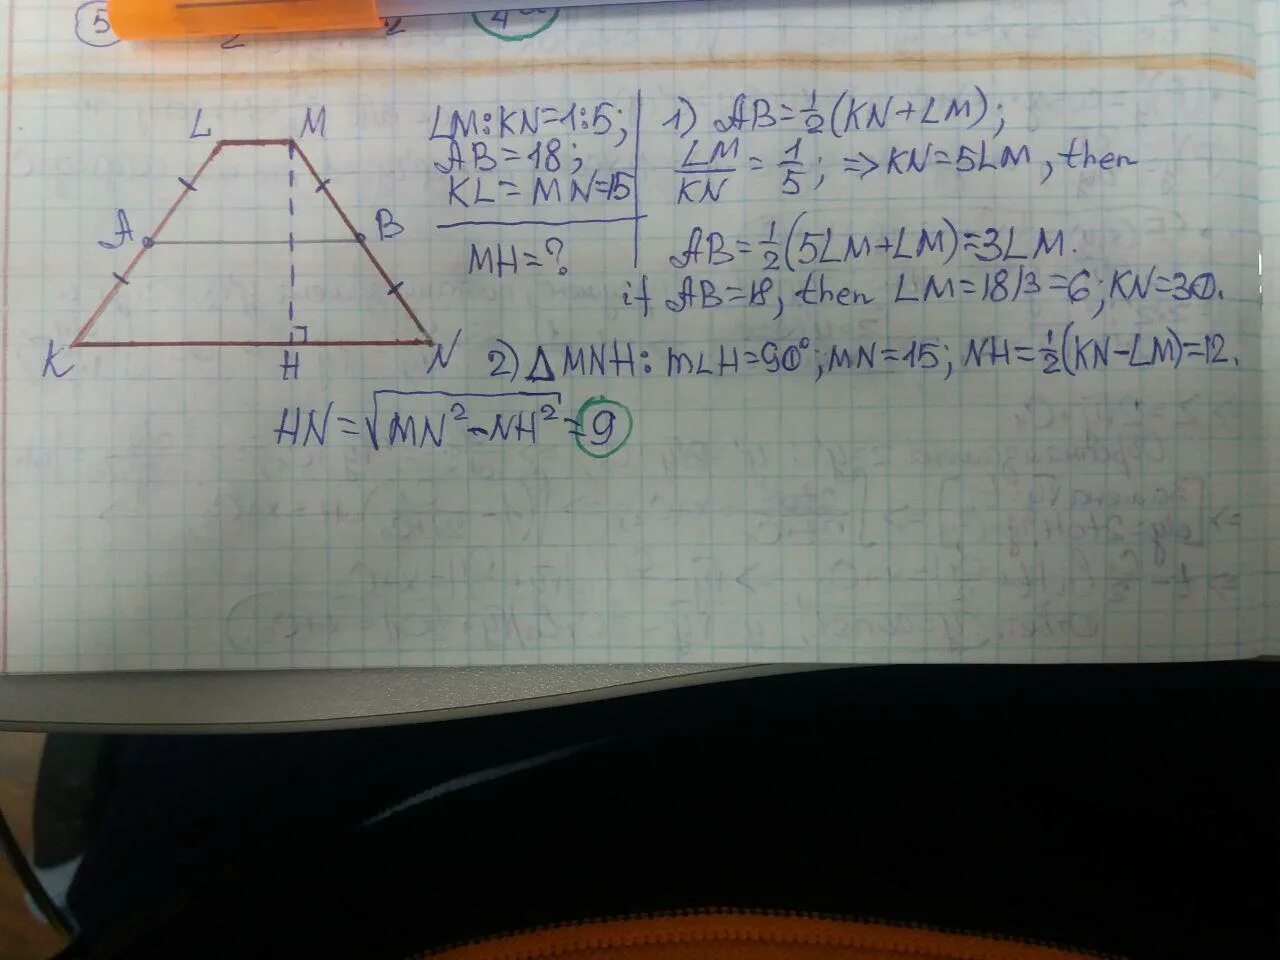 5
2
2
4
L M
A B
K H N
LM:KN=1:5;
AB=18;
KL=MN=15
MH=?
1) AB=½(KN+LM);
LM/KN=1/5; ⇒KN=5LM, then
AB=½(5LM+LM)=3LM.
if AB=18, then LM=18/3=6; KN=30.
2) ΔMNH: m∠H=90°; MN=15; NH=½(KN-LM)=12.
HN=√MN²-NH²=9